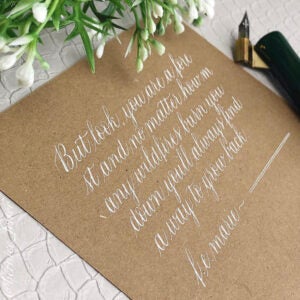 But look, you are a fore
st and no matter how m
any wildfires burn you
down you'll always find
a way to grow back